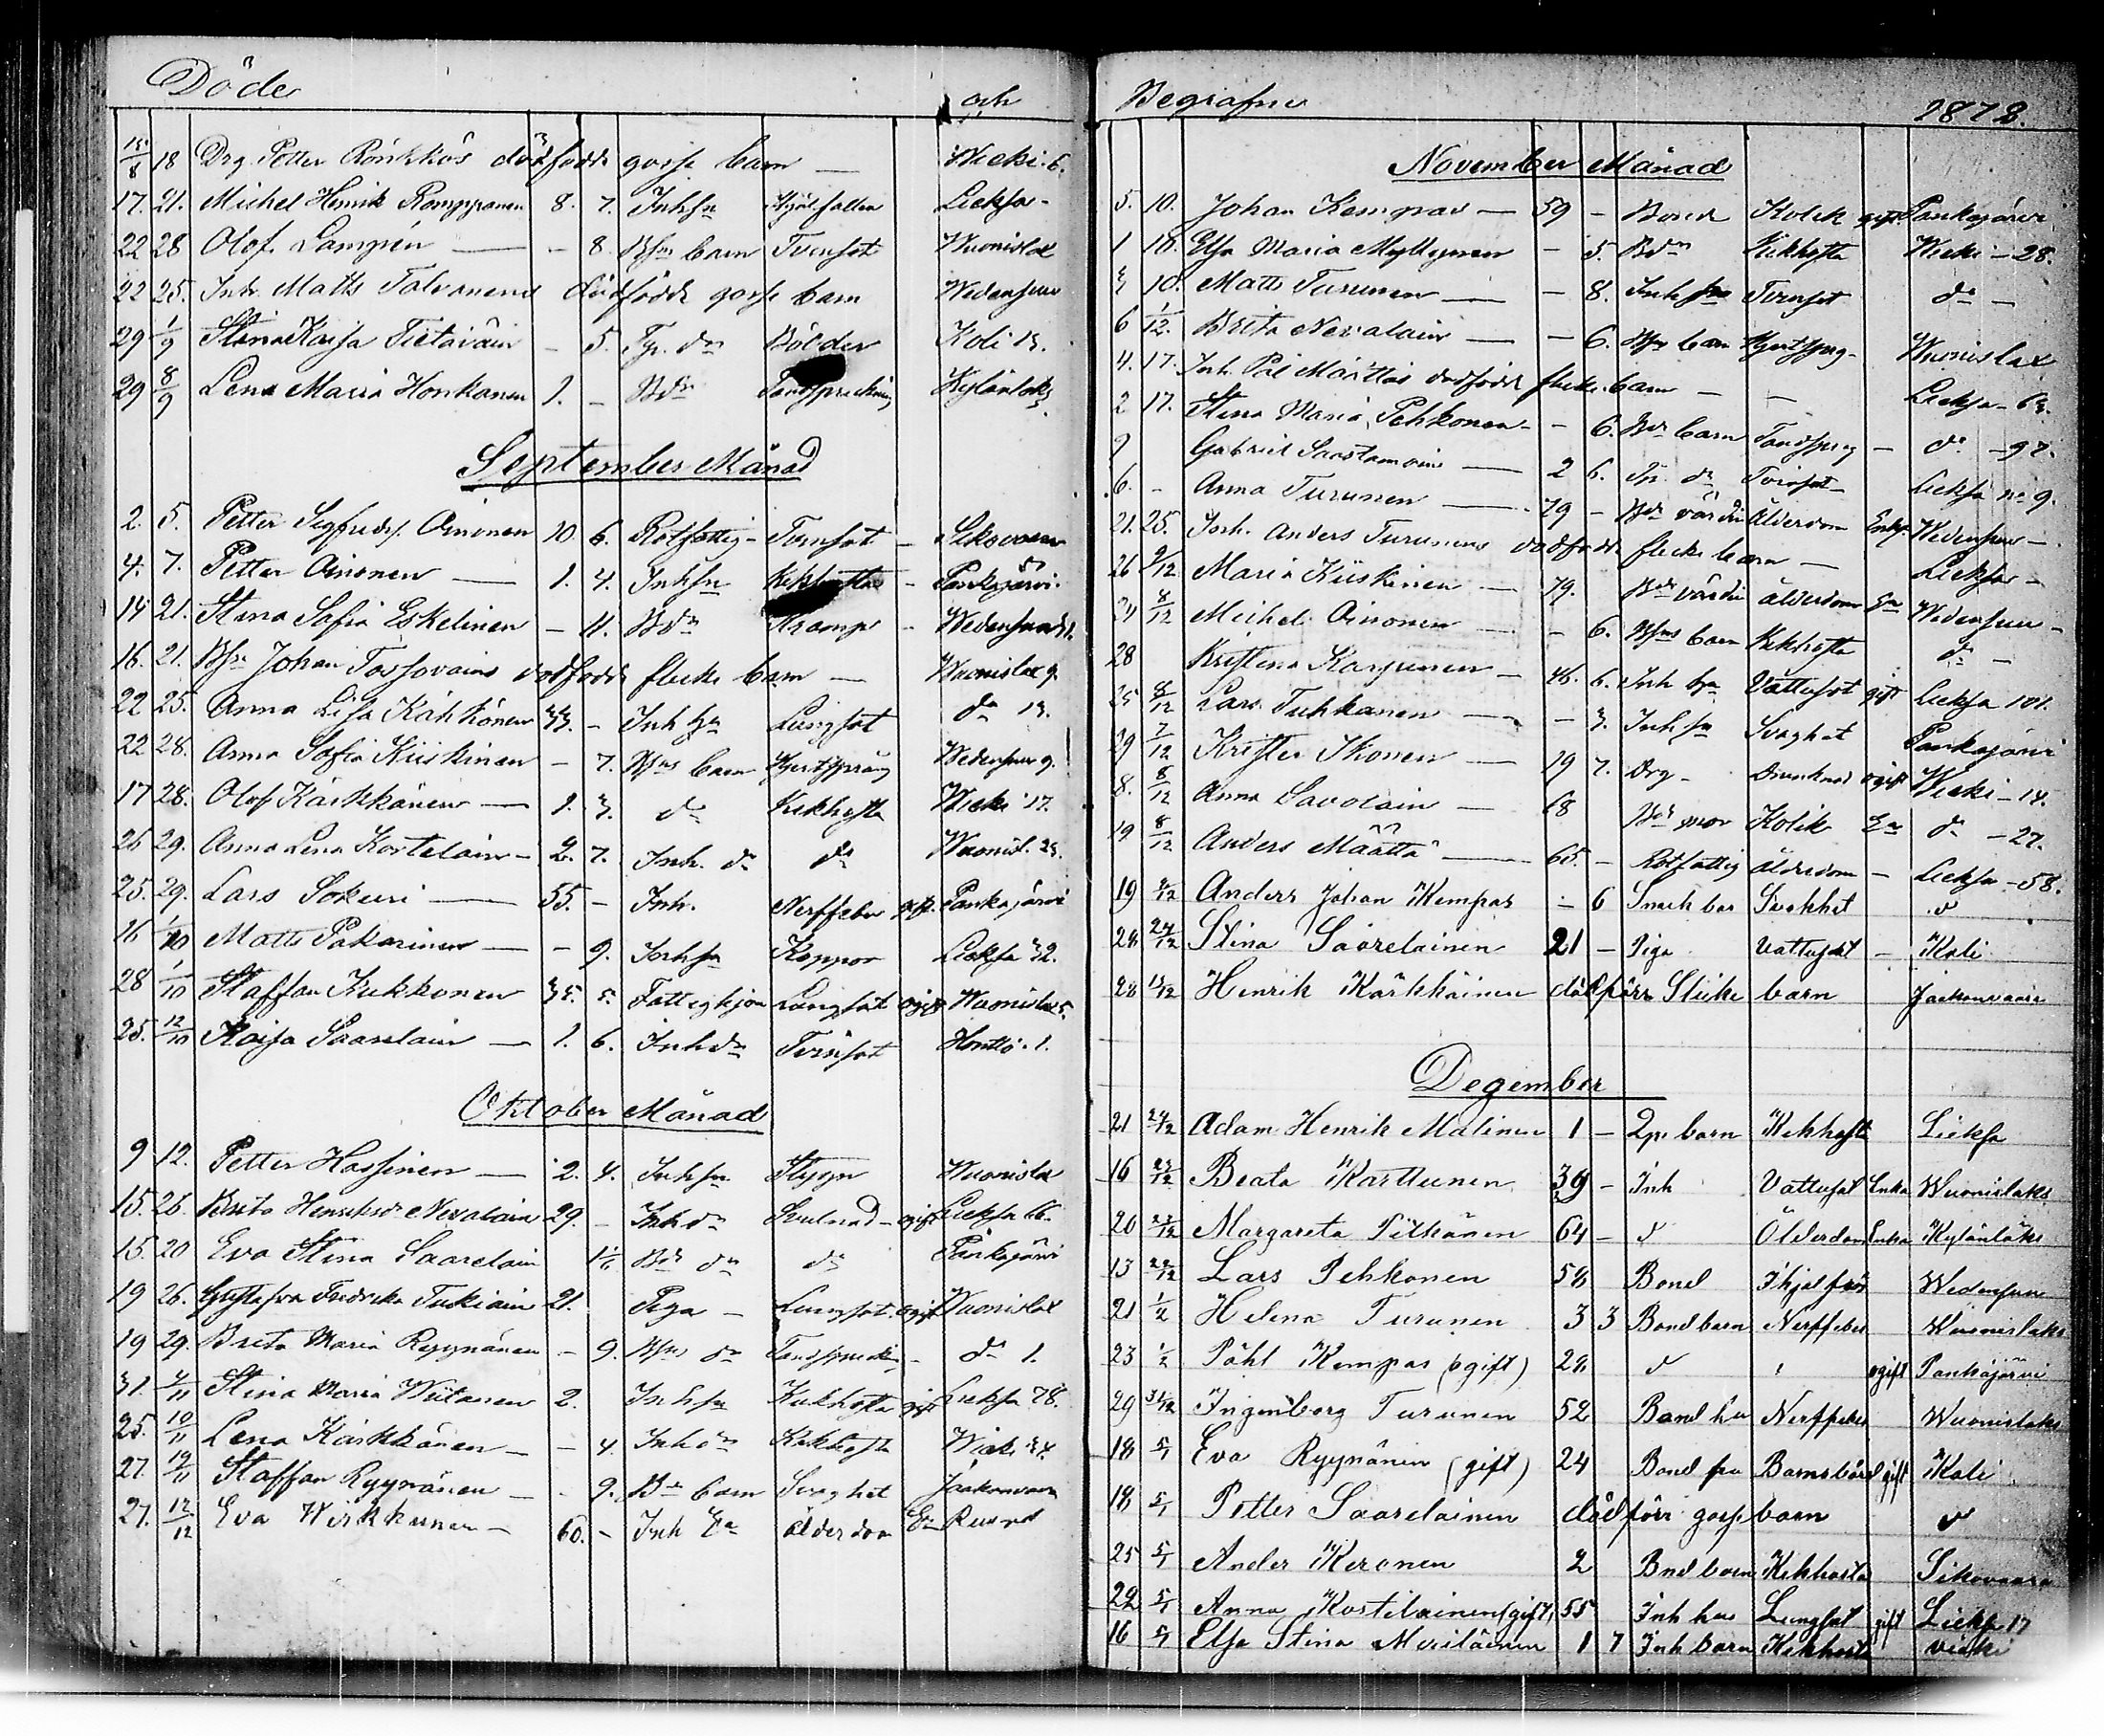 Döde och
15/8 18 Drg. Petter Rönkkös dödfödda gosse barn — Wieki 6.
17. 21. Michel Henrik Romppanen 8. 7. Inhsn Ihjälfallen Lieksa -
22 28 Olof Lampén — - 8. Bfrs barn Tvinsot Wuonislax
22 25. Inh. Matts Tolvanens dödfödde gosse barn Wedensuu
29 1/9 Stina Kaisa Tietäväin - 5. Tp. dr Bölder Koli 13.
29 8/9 Lena Maria Honkanen 1. - Bdr Tandsprickning Kylänlaks
September Månad
2. 5. Petter Sigfridss. Oinonen 10. 6. Rotfattig - Tvinsot - Sikovaara
4. 7. Petter Oinonen — 1. 4. Inhsn Kikhosta - Pankajärvi
14 21. Stina Sofia Eskelinen - 11. Bdr Kramp - Wedensuu 1.
16. 21. Bfr Johan Tossovains dödfödde flicke barn — Wuonislax 9.
22 25. Anna Lisa Kähkönen 33. - Inh Lungsot do 13.
22 28. Anna Sofia Kiiskinen - 7. Bfrs barn Hjertsprång Wedensuu 9.
17 28. Olof Kärkkänen — 1. 3. do Kikhosta Wieki 17.
26 29. Anna Lena Kortelain - 2. 7. Inh. dr do Wuonisl. 23.
25. 29. Lars Sokuri — 55. - Inh. Nerffeber gift. Pankajärvi
16 1/10 Matts Pakarinen — - 9. Inhsn Koppor Lieksa 32.
28 1/10 Staffan Kukkonen 35. 5. Fattighjon Lungsot ogift Wuonislax 5.
25. 12/10 Kaisa Saarelain — 1. 6. Inhdr Tvinsot Honttö. 1.
Oktober Månad
9 12. Petter Hassinen — 2. 4. Inhsn Styggn Wuonislax
15. 26. Brita Henriksdr Nevalain 29. - Inhdr ogift Lieksa 16.
15. 20 Eva Stina Saarelain Bdr dr do Pankajärvi
19 26. Gustafva Fredrika Tukiain 21. Piga - Lungsot. ogift Wuonislax
19 29. Brita Maria Ryynänen - 9. Bfrs dr Tandsprickn - do 1.
31. 4/11 Stina Maria Wiitanen 2. Inhsn Kikhosta gift Lieksa 78.
25. 10/11 Lena Kärkkänen - - 4. Inhdr Kikhosta Wieki 34.
27. 19/11 Staffan Ryynänen — - 9. Bdr barn Svaghet Jaakonvaara
27. 12/12 Eva Wirkkunen - 60. - Inh Ea ålderdom Ea Ruuna
Begrafne 1872.
November Månad
5. 10. Johan Kempas — 59 - Bond Kolik gift Pankajärvi
1 10. Elsa Maria Myllynen - 5. Bdr Kikhosta Wieki - 28.
3 10. Matts Turunen — - 8. Inhsn Tvinsot do -
6 1/12. Brita Nevalain — - 6. Bfrs barn Hjertspr- Wuonislax
4. 17. Inh. Pål Määttäs dödfödde flicke barn - - Lieksa - 63.
2 17. Stina Maria Pehkonen - - 6. Bdr barn Tandspr - do - 97.
9 Gabriel Saastamoin — 2 6. Tp. dr Tvinsot Lieksa no 9.
6. - Anna Turunen — 79 - Bdr värdin Ålderdom Enka Wedensuu -
21. 25. Inh. Anders Turunens dödfödde flicke barn — Lieksa -
26 9/12 Maria Kiiskinen — 79. Bdr värdin ålderdom Ea Wedensuu -
21 8/12 Michel Oinonen — - 6. Bfrs barn Kikhosta do -
28 Kristina Karpunen - 46. 6. Inh Vattusot gift Lieksa 101.
25 8/12 Lars Tuhkanen — - 3. Inhsn Svaghet Pankajärvi
29 7/12 Krister Ikonen — 29 7. Drg - Drunknad ogift Wieki - 14.
8. 8/12 Anna Savolain — 68 Bdr mor Kolik Ea do - 27.
19 8/12 Anders Määttä — 65. - Rotfattig ålderdom - Lieksa - 58.
19 9/12 Anders Johan Kempas - 6 Svakhet
28 27/12 Stina Saarelainen 21 - Piga Vattusot - Koli
28 15/12 Henrik Kärkkäinen dödförr Flicke barn Jaakonvaara
Dezember
21 24/12 Adam Henrik Malinen 1 - Lp. barn Kikhosta Lieksa
16 23/12 Beata Karttunen 39 - Inh Vattusot Enka Wuonislaks
20 23/12 Margareta Pitkänen 64 - Ölderdom Enka Kylänlaks
13 22/12 Lars Pehkonen 58 Bond Wedensuu
21 1/2 Helena Turunen 3 3 Bond barn Nerffeber Wuonislaks
23 1/2 Påhl Kempas (ogift) 28 ogift Pankajärvi
29 31/12 Ingenborg Turunen 52 Bond hu Nerffeber Wuonislaks
18 5/1 Eva Ryynänen (gift) 24 Bond fru Barnsbörd gift Koli
18 5/1 Petter Saarelainen dödförr gosse barn
25 5/1 Ander Keronen 2 Bnd barn Kikhosta Sikovaara
22 5/1 Anna Kostilainen (gift) 55 Inh hu Lungsot gift Lieksa 17
16 5/1 Elsa Stina Meriläinen 1 7 Inh barn Kikhosta Vieki